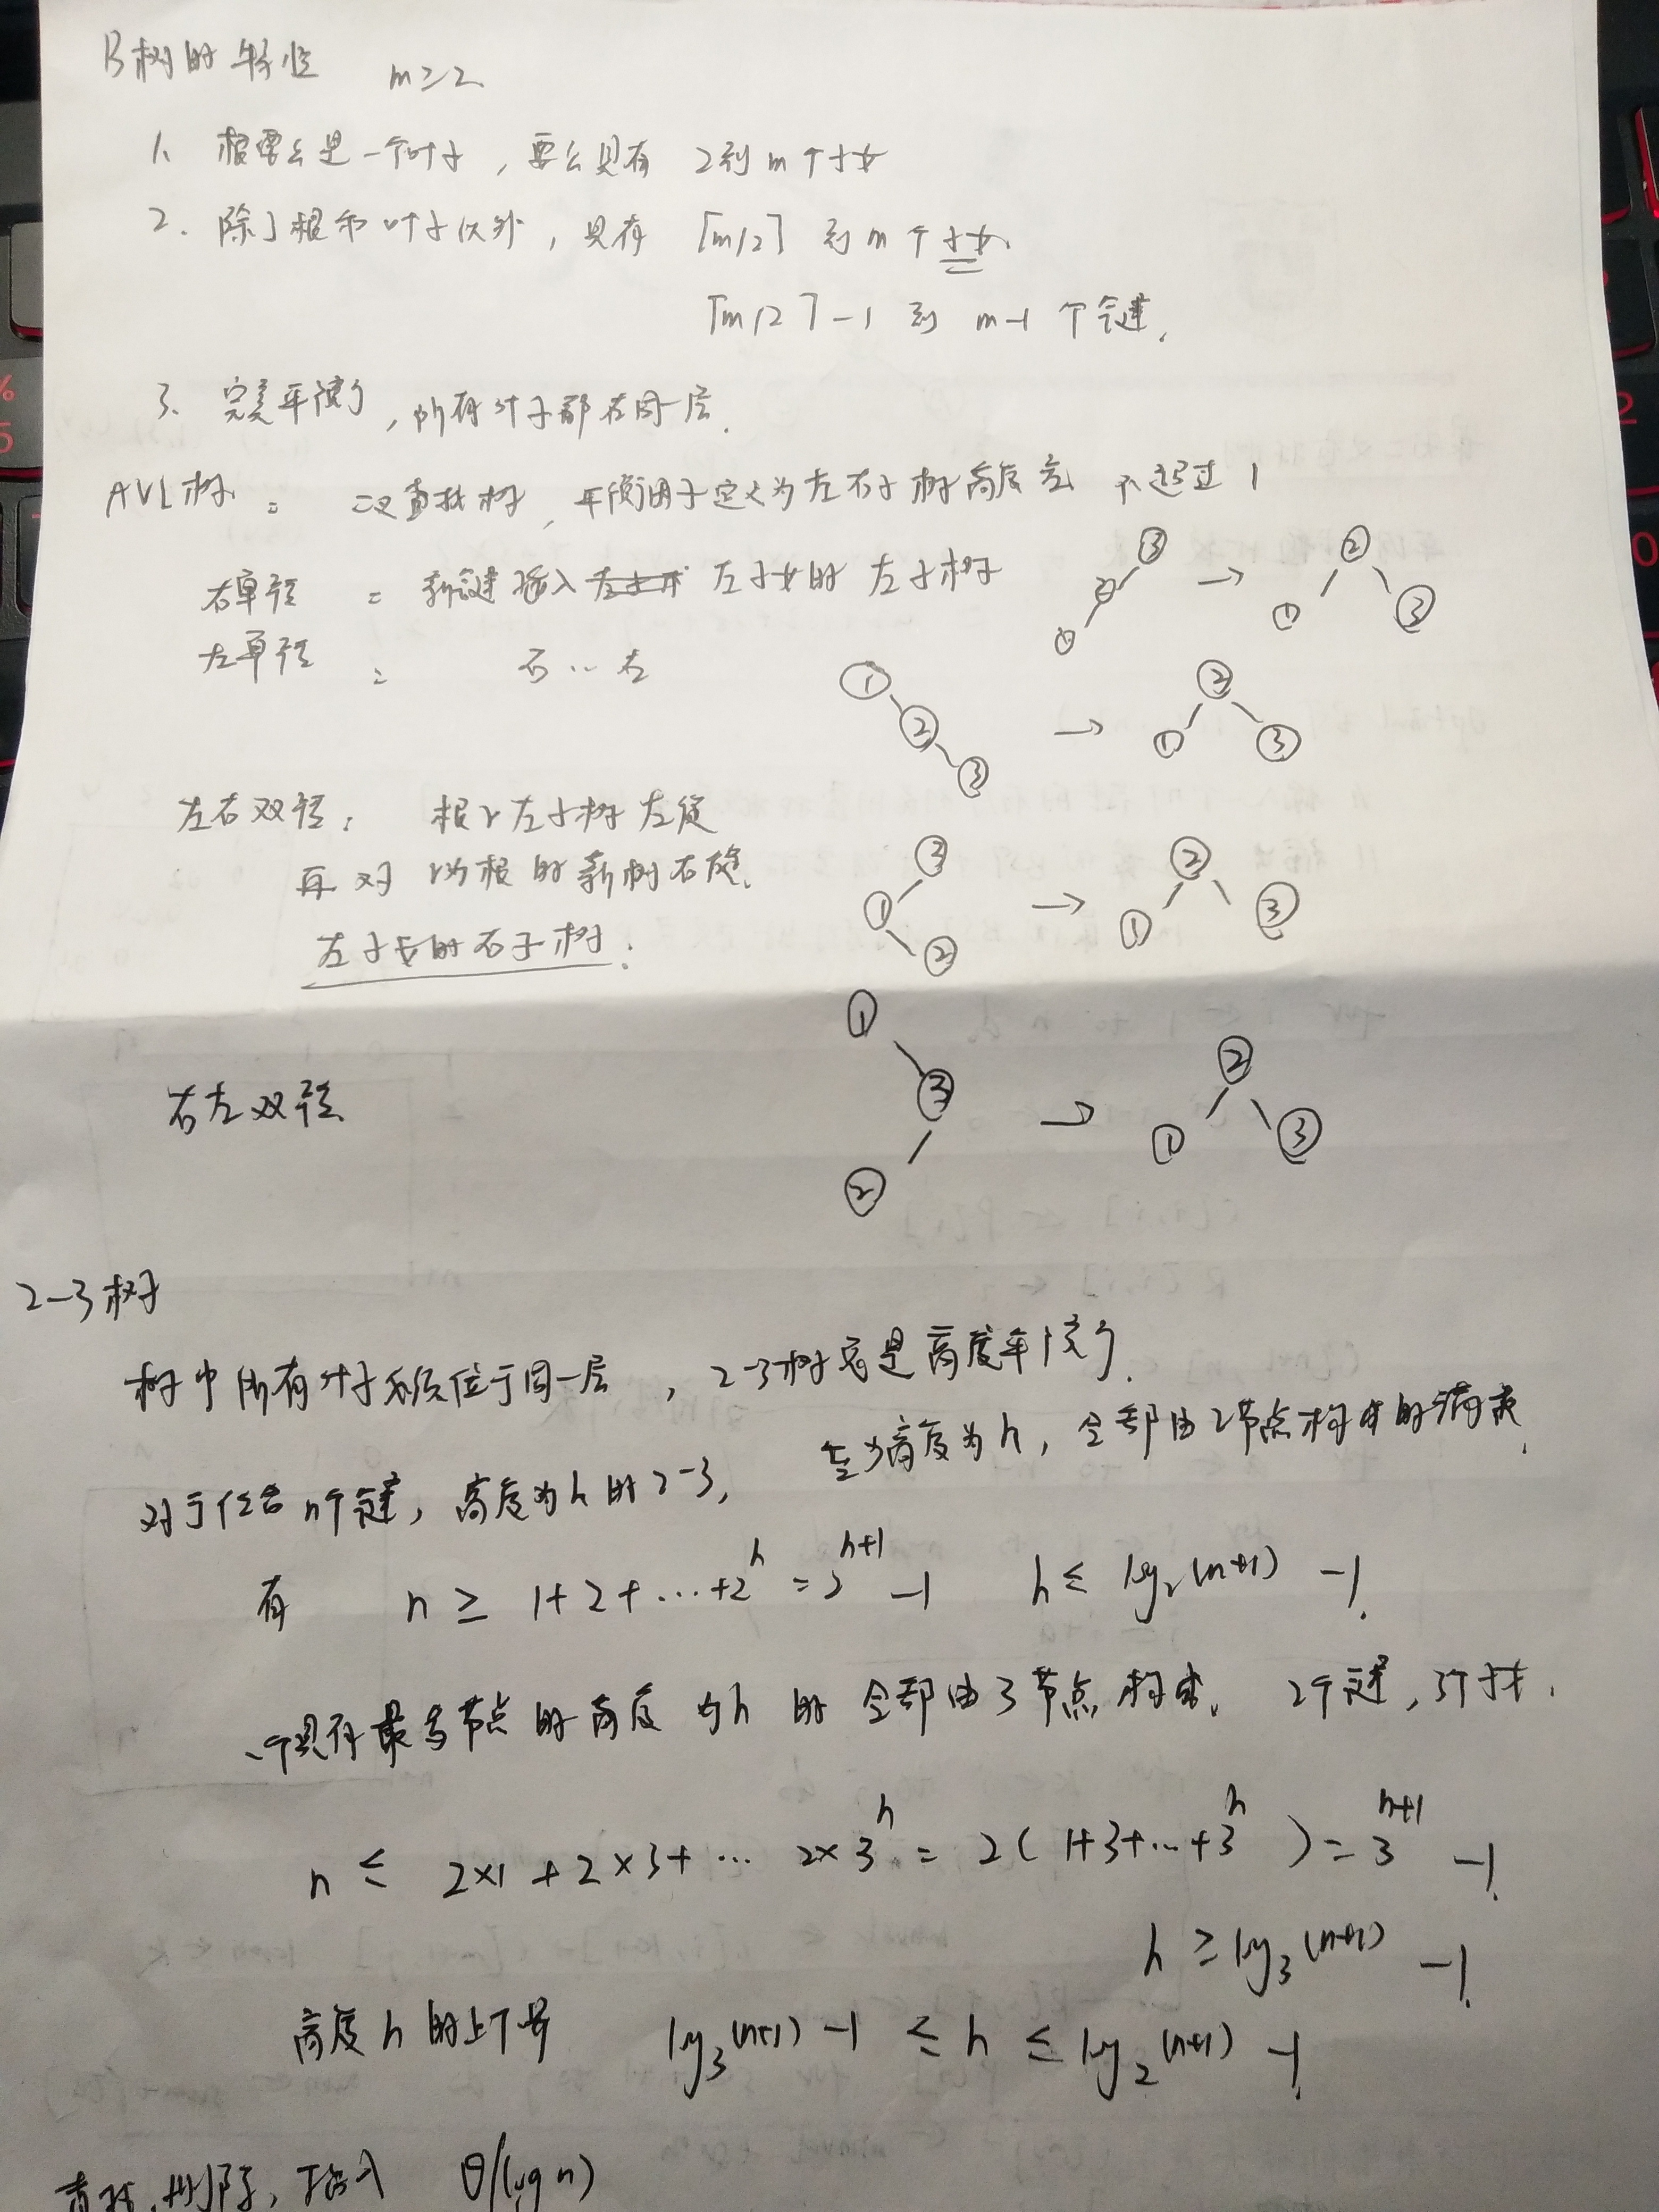 B树的特性 m≥2
1、根要么是一个叶子，要么具有 2到m个子女
2. 除了根和叶子以外，具有 ⌈m/2⌉ 到 m个子女
⌈m/2⌉-1 到 m-1 个键.
3、完美平衡, 所有叶子都在同一层.
AVL树: 二叉查找树, 平衡因子定义为左右子树高度差 不超过 1
右单转: 新键插入 左子女的 左子树
3 2 1 → 2 1 3
左单转: 右 ‥ 右
1 2 3 → 2 1 3
左右双转: 根r左子树左旋
再对 r为根的新树右旋.
左子女的右子树.
3 1 2 → 2 1 3
右左双转
1 3 2 → 2 1 3
2-3树
树中所有叶子必须位于同一层，2-3树总是高度平衡.
对于任意 n个键, 高度为h的2-3, 至少高度为h, 全部由2节点构成的满树.
有 n ≥ 1+2+…+2^h = 2^{h+1} -1 h ≤ log₂(n+1) -1.
一个具有最多节点的高度为h的 全部由3节点构成. 2个键, 3个子女.
n ≤ 2×1+2×3+… 2×3^h = 2(1+3+…+3^h) = 3^{h+1} -1.
h ≥ log₃(n+1) -1.
高度h的上下界 log₃(n+1) -1 ≤ h ≤ log₂(n+1) -1.
查找, 删除, 插入 Θ(log n)